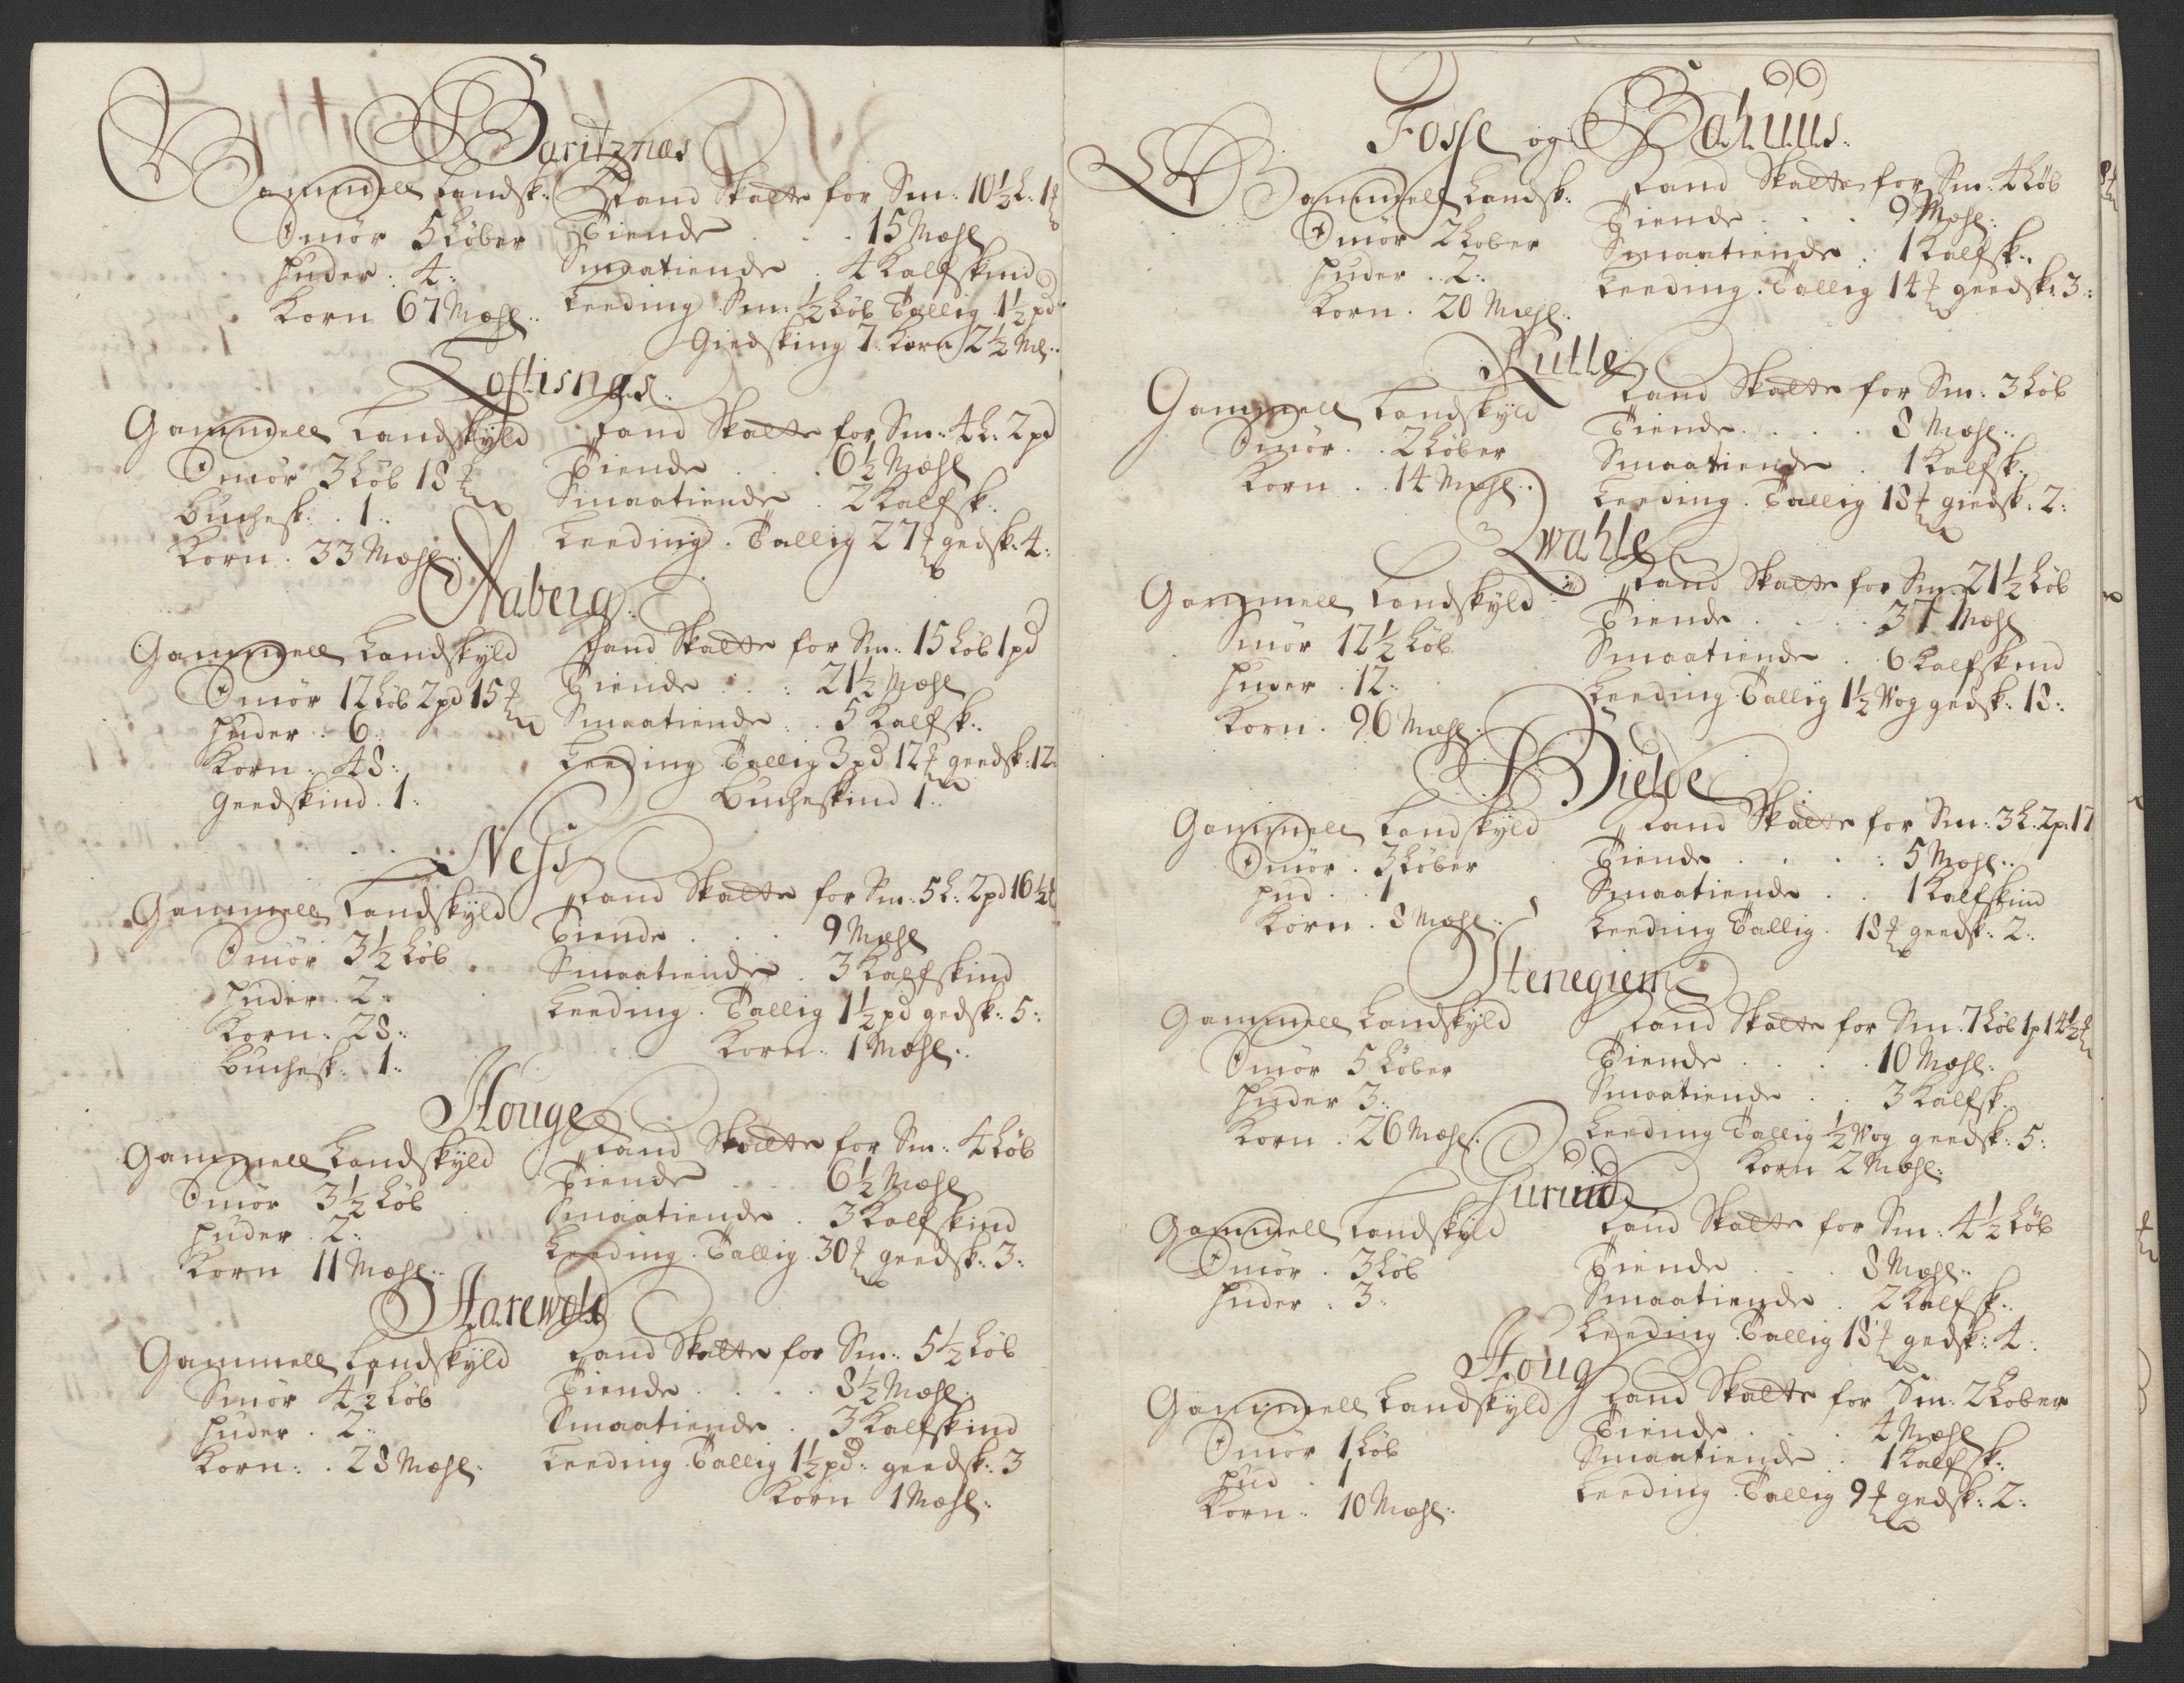 Baritznæs
Gammell Landsk:
Smör 5 Löber
Huder : 4 :
Korn 67 Mæhl :
Land Skatte for Sm: 10½ L: 1
Tiende . . . 15 Mæhl
Smaatiende . 4 Kalfskind
Leeding Sm: ½ Löb Tallig 1½ pd
Giedsking 7 Korn 2½ Ml :
Loftisnæs
Gammell Landskÿld
Smör 3 Löb 18 ℔
Buchesk: . 1 :
Korn . 33 Mæhl :
Land Skatte for Sm: 4 L: 2 pd
Tiende . . . 6½ Mæhl
Smaatiende . 2 Kalfsk:
Leeding . Tallig 27 ℔ gedsk: 4 :
Aaberg
Gammell Landskÿld
Smör 12 Löb 2 pd 15 ℔
Huder : 6 :
Korn : 48 :
Geedskind . 1 :
Land Skatte for Sm: 15 Löb 1 pd
Tiende . . : 21½ Mæhl
Smaatiende . . 5 Kalfsk:
Leeding Tallig 3 pd 12 ℔ geedsk: 12 :
Bucheskind 1 :
Ness
Gammell Landskÿld
Smör 3½ Löb
Huder . 2 :
Korn : 28 :
Buchesk: . 1 :
Land Skatte for Sm: 5 L: 2 pd 16½ ℔
Tiende . . . 9 Mæhl
Smaatiende . 3 Kalfskind
Leeding . Tallig 1½ pd gedsk: 5 :
Korn : 1 Mæhl :
Houge
Gammell Landskÿld
Smör 3½ Löb
Huder . 2 :
Korn 11 Mæhl :
Land Skatte for Sm: 4 Löb
Tiende . . . 6½ Mæhl
Smaatiende . 3 Kalfskind
Leeding . Tallig 30 ℔ geedsk: 3 :
Harewold
Gammell Landskÿld
Smör 4½ Löb
Huder . 2 :
Korn : . 28 Mæhl :
Land Skatte for Sm: 5½ Löb
Tiende . . . . 8½ Mæhl :
Smaatiende . 3 Kalfskind
Leeding . Tallig 1½ pd: geedsk: 3
Korn 1 Mæhl :
Fosse og Bahuus :
Gammell Landsk:
Smör 2 Löber
Huder . 2 :
Korn . 20 Mæhl :
Land Skatte for Sm: 4 Löb
Tiende . . . 9 Mæhl :
Smaatiende . 1 Kalfsk:
Leeding . Tallig 14 ℔ geedsk: 3 :
Rutle
Gammell Landskÿld
Smör . . 2 Löber
Korn . . 14 Mæhl :
Land Skatte for Sm: 3 Löb
Tiende . . . . 8 Mæhl :
Smaatiende . 1 Kalfsk:
Leeding . Tallig 18 ℔ giedsk: 2 :
Qwahle
Gammell Landskÿld
Smör 12½ Löb
Huder . 12 :
Korn . 96 Mæhl :
Land Skatte for Sm: 21½ Löb
Tiende . . . . 37 Mæhl
Smaatiende . . 6 Kalfskind
Leeding Tallig 1½ Wog gedsk: 18 :
Bielde
Gammell Landskÿld
Smör . 3 Löber
Hud . . 1
Korn . 8 Mæhl :
Land Skatte for Sm: 3 L: 2 p: 17
Tiende . . . : 5 Mæhl :
Smaatiende . . 1 Kalfskind
Leeding Tallig . 18 ℔ geedsk: 2 :
Stenegiem
Gammell Landskÿld
Smör 5 Löber
Huder 3 :
Korn . 26 Mæhl :
Land Skatte for Sm: 7 Löb 1 p 14½ ℔
Tiende . . . . 10 Mæhl :
Smaatiende . . 3 Kalfsk:
Leeding Tallig ½ Wog geedsk: 5 :
Korn 2 Mæhl :
Gammell Landskÿld
Smör . 3 Löb
Huder . 3 :
Land Skatte for Sm: 4½ Löb
Tiende . . . 8 Mæhl :
Smaatiende . 2 Kalfsk:
Leeding . Tallig 18 ℔ gedsk: 4 :
Houg
Gammell Landskÿld
Smör 1 Löb
Hud . 1
Korn : 10 Mæhl :
Land Skatte for Sm: 2 Löber
Tiende . . . 4 Mæhl
Smaatiende . 1 Kalfsk:
Leeding . Tallig 9 ℔ gedsk: 2 :